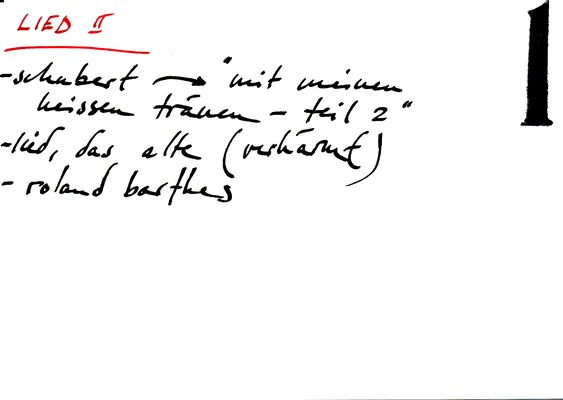 LIED II
1
-schubert → "mit meinen
heissen tränen - teil 2"
-lied, das alte (verhärmt)
- roland barthes